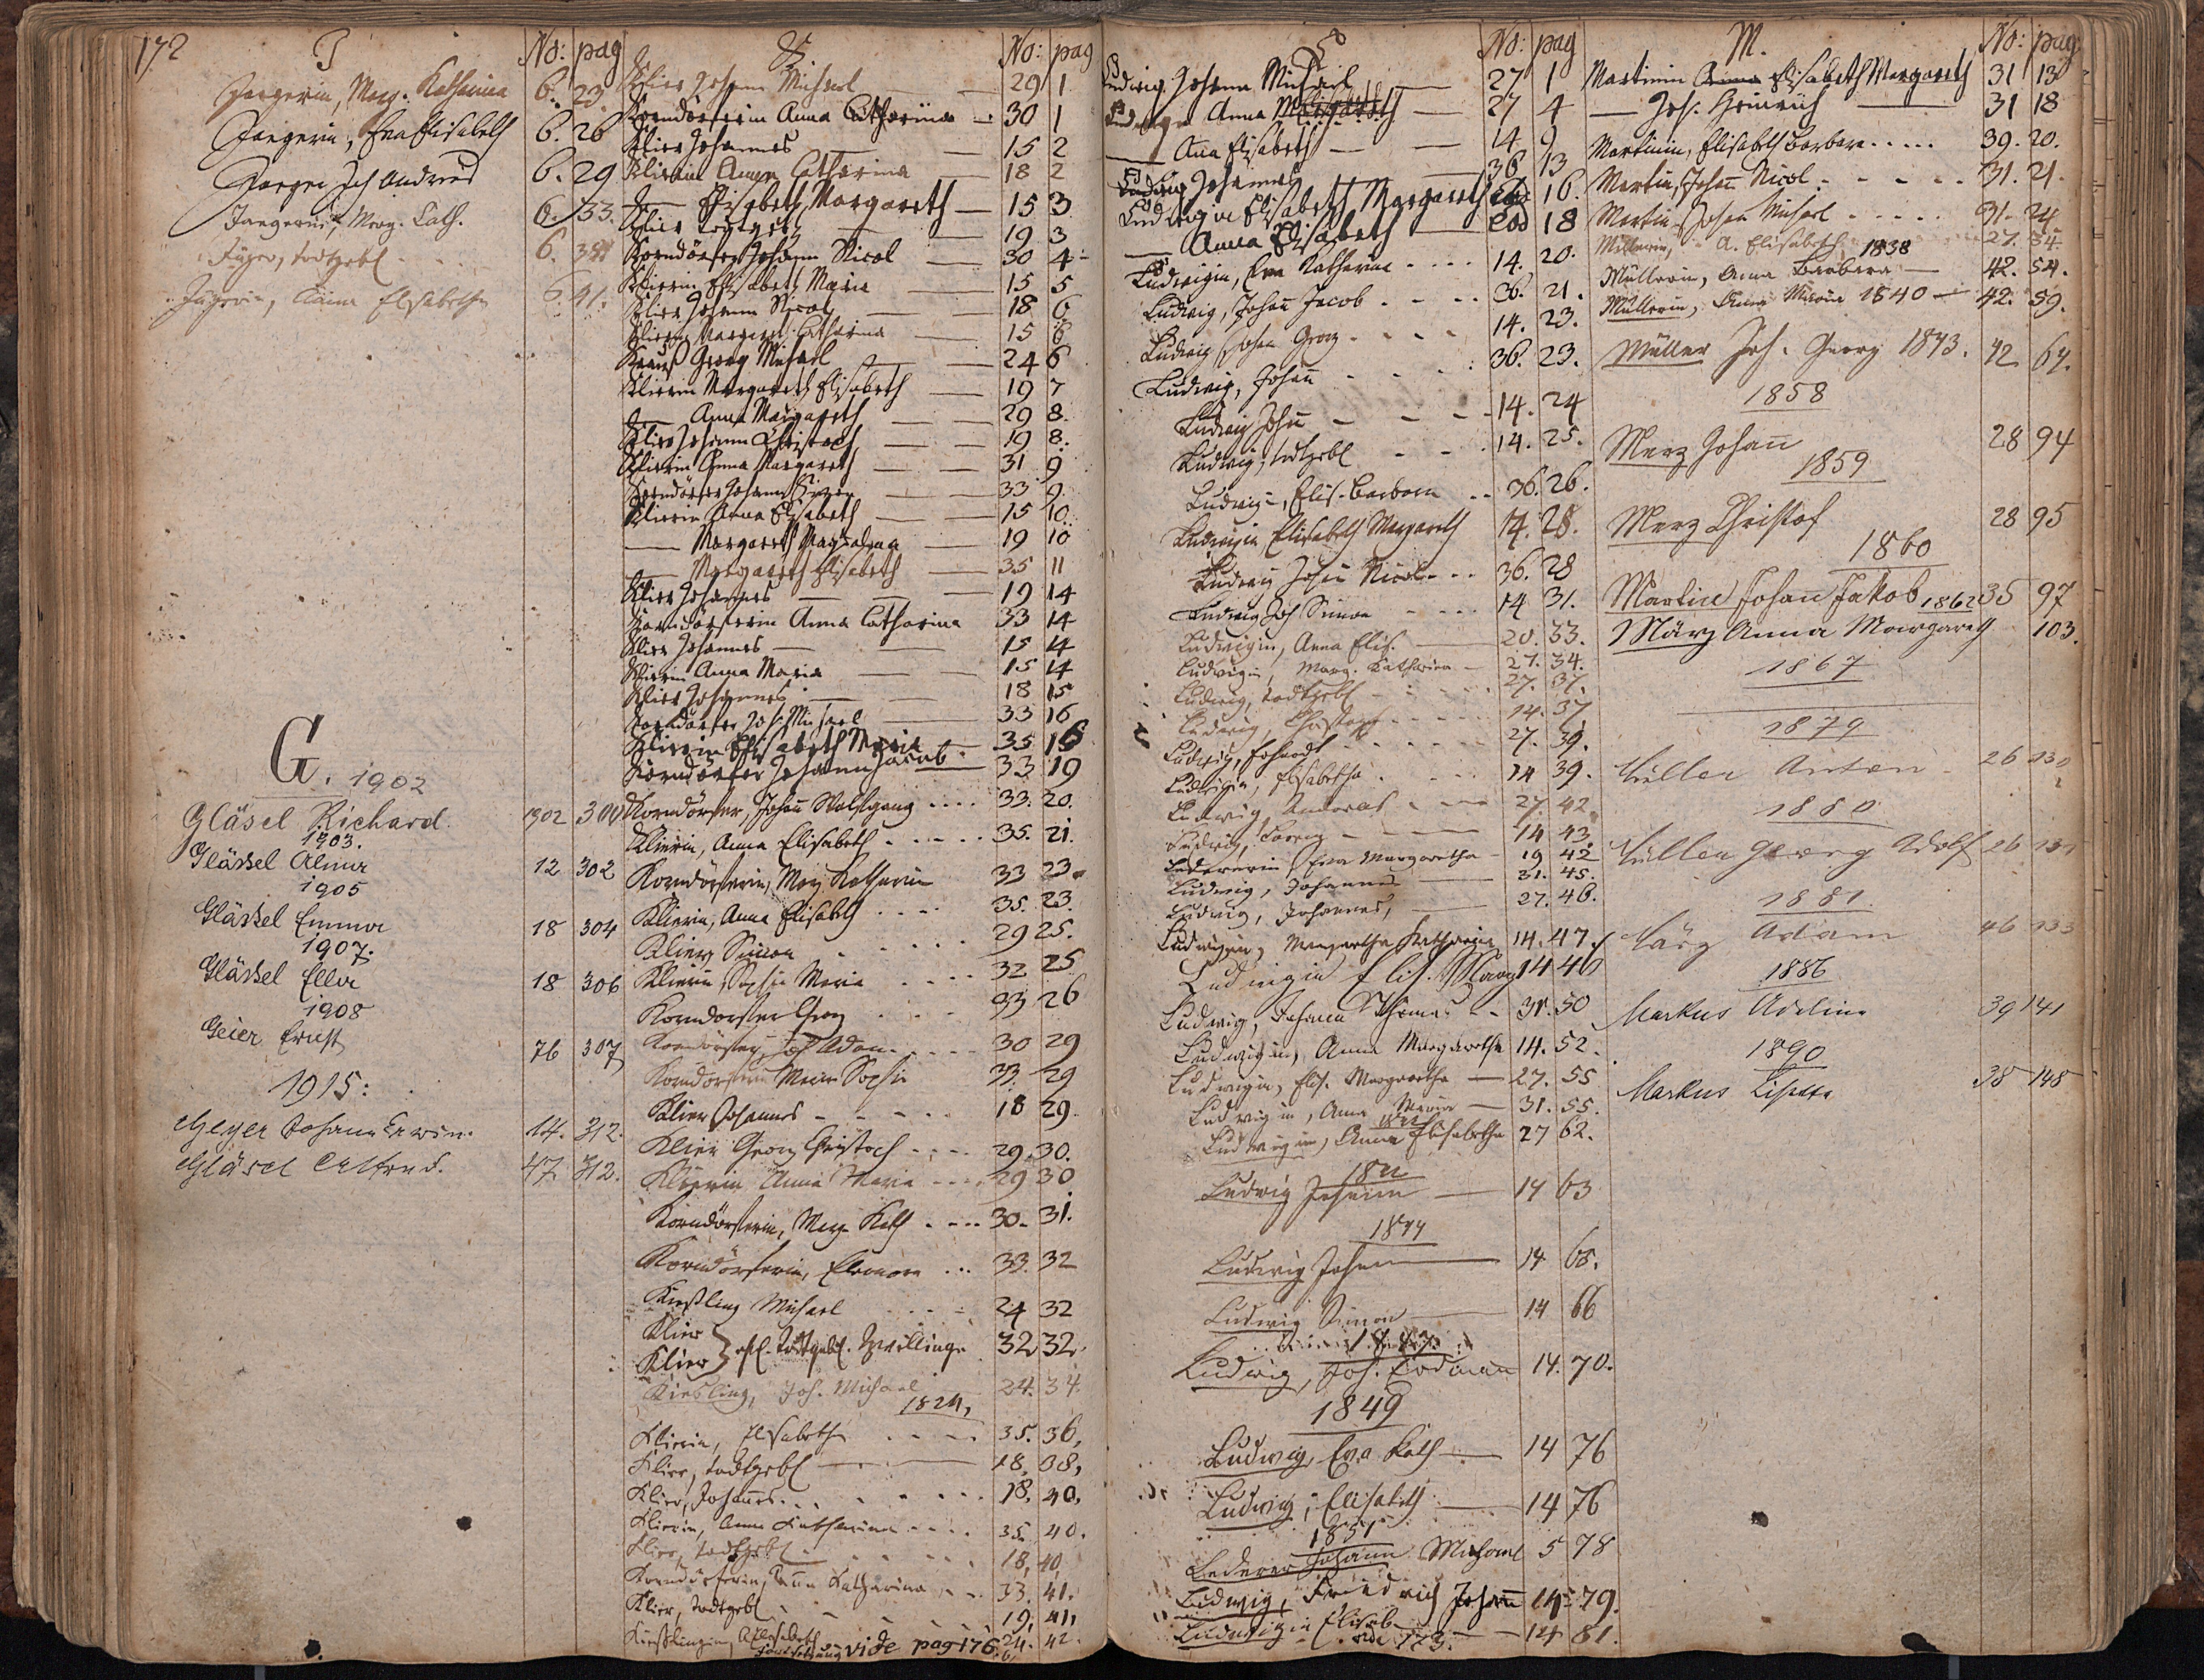 172
J
No: pag
Jaegerin, Marg. Katharina 6. 23.
Jaegerin, Eva Elisabeth 6. 26
Jaeger Joh Andreas 6. 29
Jaegerin, Marg. Cath. 6. 33.
Jäger, todtgebl 6.
Jägerin, Elisabetha 6. 41.
G. 1902
Gläsel Richard 1902 300
1903.
Glässel Alma 12 302
1905
Glässel Emma 18 304
1907.
Glässel Ella 18 306
1908
Geier Ernst 76 307
1915:
Geyer Johann Erwin. 14. 312.
Gläsel Alfred. 47 312.
K
No: pag
Klier Johann Michael 29 1
Korndörferin Anna Catharina 30 1
Klier Johannes 15 2
Klierin Anna Catharina 18 2
Elisabeth Margareth 15 3
Klier 19 3
Korndörfer Johann Nicol 30 4
Klierin Elisabeth Maria 15 5
Klier Johann Nicol 18 6
Klierin Margareth Catharina 15 6
Krauß Georg Michael 24 6
Klierin Margareth Elisabeth 19 7
Anna Margareth 29 8.
Klier Johann Christoph 19 8.
Klierin Anna Margareth 31 9
Korndörfer Johann Simon 33 9.
Klierin Anna Elisabeth 15 10.
Margareth Magdalena 19 10
Margareth Elisabeth 35 11
Klier Johannes 19 14
Korndörferin Anna Catharina 33 14
Klier Johannes 15 14
Klierin Anna Maria 15 14
Klier Johannes 18 15
Korndörfer Joh. Michael 33 16
Klierin Elisabeth Maria 35 16
Korndörfer Johann Jacob 33 19
Korndörfer, Johañ Wolfgang 33. 20.
Klierin, Anna Elisabeth 35. 21.
Korndörferin, Marg. Katharin 33 23.
Klierin, Anna Elisabeth 35. 23.
Klier Simon 29 25.
Klierin, Sophie Maria 32 25
Korndorfer Georg 33 26
Korndörfer, Joh Adam 30 29
Korndorferin Maria Sophie 33. 29
Klier Johannes 18 29.
Klier Georg Christoph 29. 30.
Klierin Anna Maria 29 30
Korndörferin, Marg. Kath 30. 31.
Korndörferin, Eleonora 33. 32
Kießling Michael 24 32
Klier
Klier } todtgebl. Zwillinge 32 32.
Kiesling, Joh. Michael 24. 34.
1824,
Klierin, Elisabetha 35. 36,
Klier, todtgebl 18, 38,
Klier, Johañes 18, 40,
Klierin, Anna Katharina 35. 40.
Klier, todtgebl 18, 40,
Korndörferin, Anna Katharina 33. 41.
Klier, todtgebl 19, 41,
Kießlingin, A. Elisabeth 24. 42.
Fortsetzung vide pag 176.
L
No: pag
Ludwig Johann Michael 27 1
Ludwigin Anna Margareth 27 4
Aña Elisabeth 14 9
Ludwig Johannes 36 13
Ludwigin Elisabeth Margareth eod 16.
Anna Elisabeth eod 18
Ludwigin, Eva Katharina 14. 20.
Ludwig, Johañ Jacob 36. 21.
Ludwig Johañ Georg 14. 23.
Ludwig, Johañ 36. 23.
Ludwig Johañ 14. 24
Ludwig, todtgebl 14. 25.
Ludwigin, Elis. Barbara 36. 26.
Ludwigin Elisabeth Margareth 14. 28.
Ludwig Johañ Nicol 36. 28
Ludwig Joh Simon 14 31.
Ludwigin, Anna Elis. 20. 33.
Ludwigin, Marg. Katharina 27. 34.
Ludwig, todtgebl 27. 37.
Ludwig, Christoph 14. 37
Ludwig, Erhardt 27. 39.
Ludwigin, Elisabetha 14 39.
Ludwig, Andreas 27. 42
Ludwig, Georg 14 43.
Ledererin, Eva Margaretha 19 42
Ludwig, Johannes 31. 45.
Ludwig, Johannes, 27. 46.
Ludwigin, Margaretha Katharina 14. 47.
Ludwigin Elis. Marg 14 46
Ludwig, Johann Thomas 31. 50
Ludwigin, Anna Margaretha 14. 52.
Ludwigin, Elis. Margaretha 27. 55
Ludwigin, Anna Maria 31. 55.
Ludwigin, Anna Elisabetha 27 62.
Ludwig Johann 14 63
1844
Ludwig Johann 14 65.
Ludwig Simon 14 66
1847
Ludwig, Joh. Erdmann 14. 70.
1849
Ludwig, Eva Kath 14 76
Ludwig, Elisabeth 14 76
1851
Lederer Johann Michael 5 78
Ludwig, Friedrich Johann 14 79.
Ludwigin Elisab 14 81.
vide 173.
M.
No: pag.
Martinin Anna Elisabeth Margareth 31 13
Joh. Heinrich 31 18
Martinin, Elisabeth Barbara 39. 20.
Martin, Johañ Nicol 31. 21.
Martin Johañ Michael 31. 24
Müllerin, A. Elisabeth 27. 34
1838
Müllerin, Anna Barbara 42. 54.
Müllerin, Anna Maria 1840 42. 59.
Müller Joh. Georg 1843. 42 64.
1858
Merz Johañ 28 94
1859
Merz Christof 28 95
1860
Martin Johañ Jakob 1862 35 97
März Anna Margareth 103.
1867
1879
Müller Anton 26 130
1880
Müller Georg Adolf 26 131
1881
März Adam 46 133
1886
Markus Adeline 39 141
1890
Markus Lisette 38 148